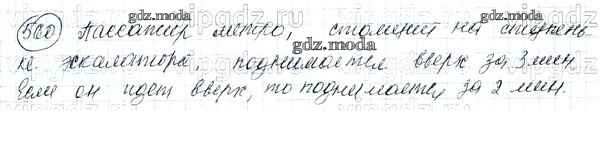 560) Пассажир метро, стоящий на ступень
ке эскалатора поднимается вверх за 3 мин.
Если он идет вверх, то поднимается за 2 мин.
gdz.moda
gdz.moda
gdz.moda
gdz.moda
gdz.moda